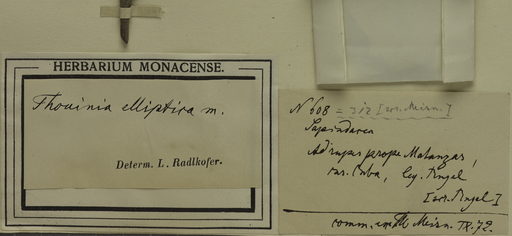 HERBARIUM MONACENSE.
Thouinia elliptica m.
Determ. L. Radlkofer.
N 608 = 312 [ser. Meisn.]
Sapindacea
Ad rupes prope Matanzas,
ins. Cuba, leg. Rugel
[scr. Rugel]
comm. Meisn. IX. 72.